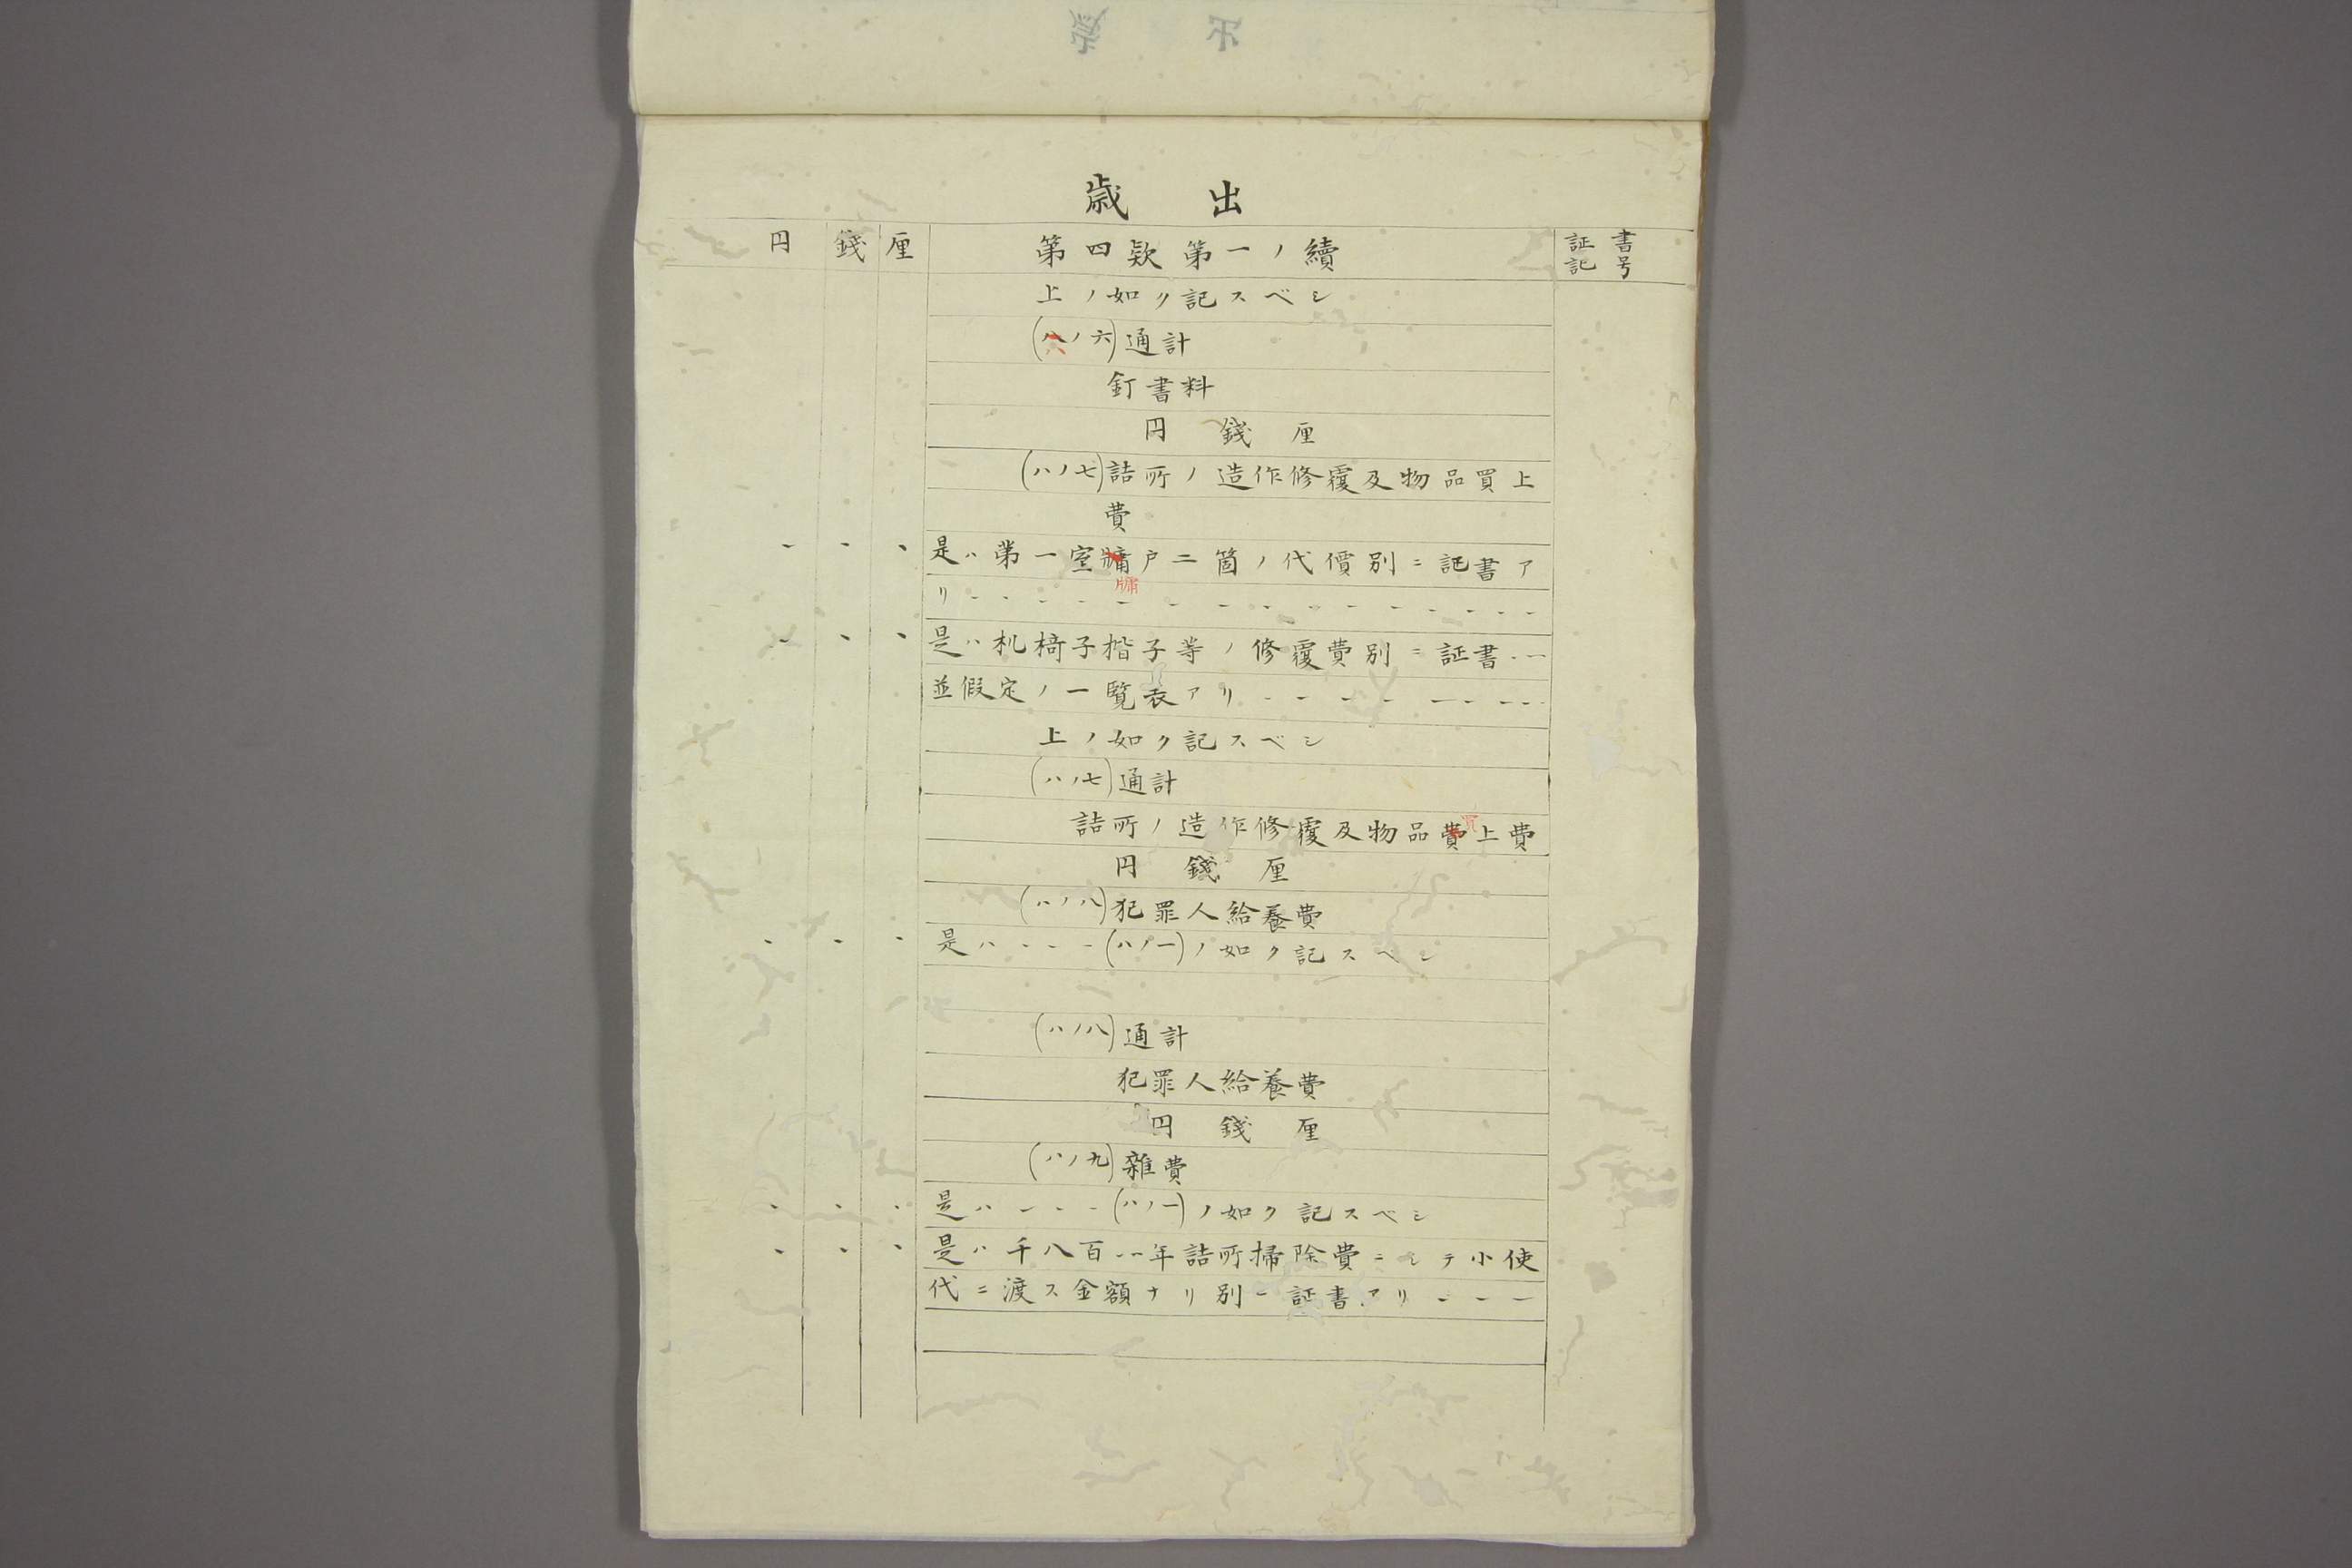 歳出
円 錢 厘 第四款第一ノ續 証書
記号
上ノ如ク記スベシ
(八ノ六)通計
六
釘書料
円 錢 厘
(八ノ七)詰所ノ造作修覆及物品買上
費
是ハ第一室牗戸二箇ノ代價別ニ証書ア
牗
リ
是ハ机椅子揩子等ノ修覆費別ニ証書
並假定ノ一覧表アリ
上ノ如ク記スベシ
(八ノ七)通計
買
詰所ノ造作修覆及物品費上費
円 錢 厘
(八ノ八)犯罪人給養費
是ハ(八ノ一)ノ如ク記スベシ
(八ノ八)通計
犯罪人給養費
円 錢 厘
(八ノ九)雜費
是ハ(八ノ一)ノ如ク記スベシ
是ハ千八百年詰所掃除費ニシテ小使
代ニ渡ス金額ナリ別ニ証書アリ